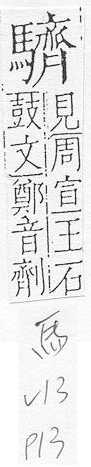 驕
見周宣王石
鼓文鄭音劑
馬
V13
P13